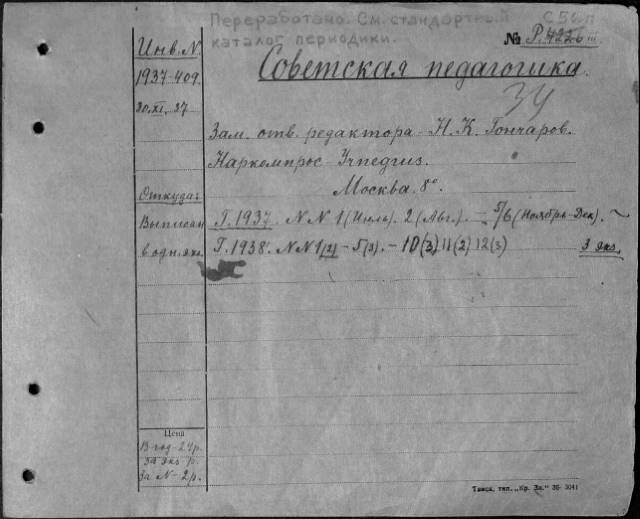 Переработано. См. стандартный С 56 п
каталог периодики.
№ Р.4226 III
Инв. N.
1937-409.
20.XI.37
Советская педагогика.
34
Зам. отв. редактора - Н. К. Гончаров.
Наркомпрос - Учпедгиз.
Москва. 8°.
Откуда:
Выписан
в одн. экз.
Г. 1937. NN 1 (Июль). 2 (Авг.). - 5/6 (Ноябрь-Дек.).
Г. 1938. NN 1(2) - 5(3). - 10(3) 11(2) 12(3) 3 экз.
Цена
В год - 24 р.
За экз. р.
За N - 2 р.
тип. „Кр. Зн." 36- 3041